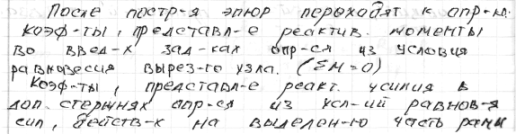 После постр-я эпюр переходят к опр-ю.
Коэф-ты, представл-е реактив. моменты
во введ-х зад-ках опр-ся из условия
равновесия вырез-го узла. (ΣM=0)
Коэф-ты, представл-е реакт. усилия в
доп. стержнях опр-ся из усл-ий равнов-я
сил, действ-х на выделен-ю часть рамы